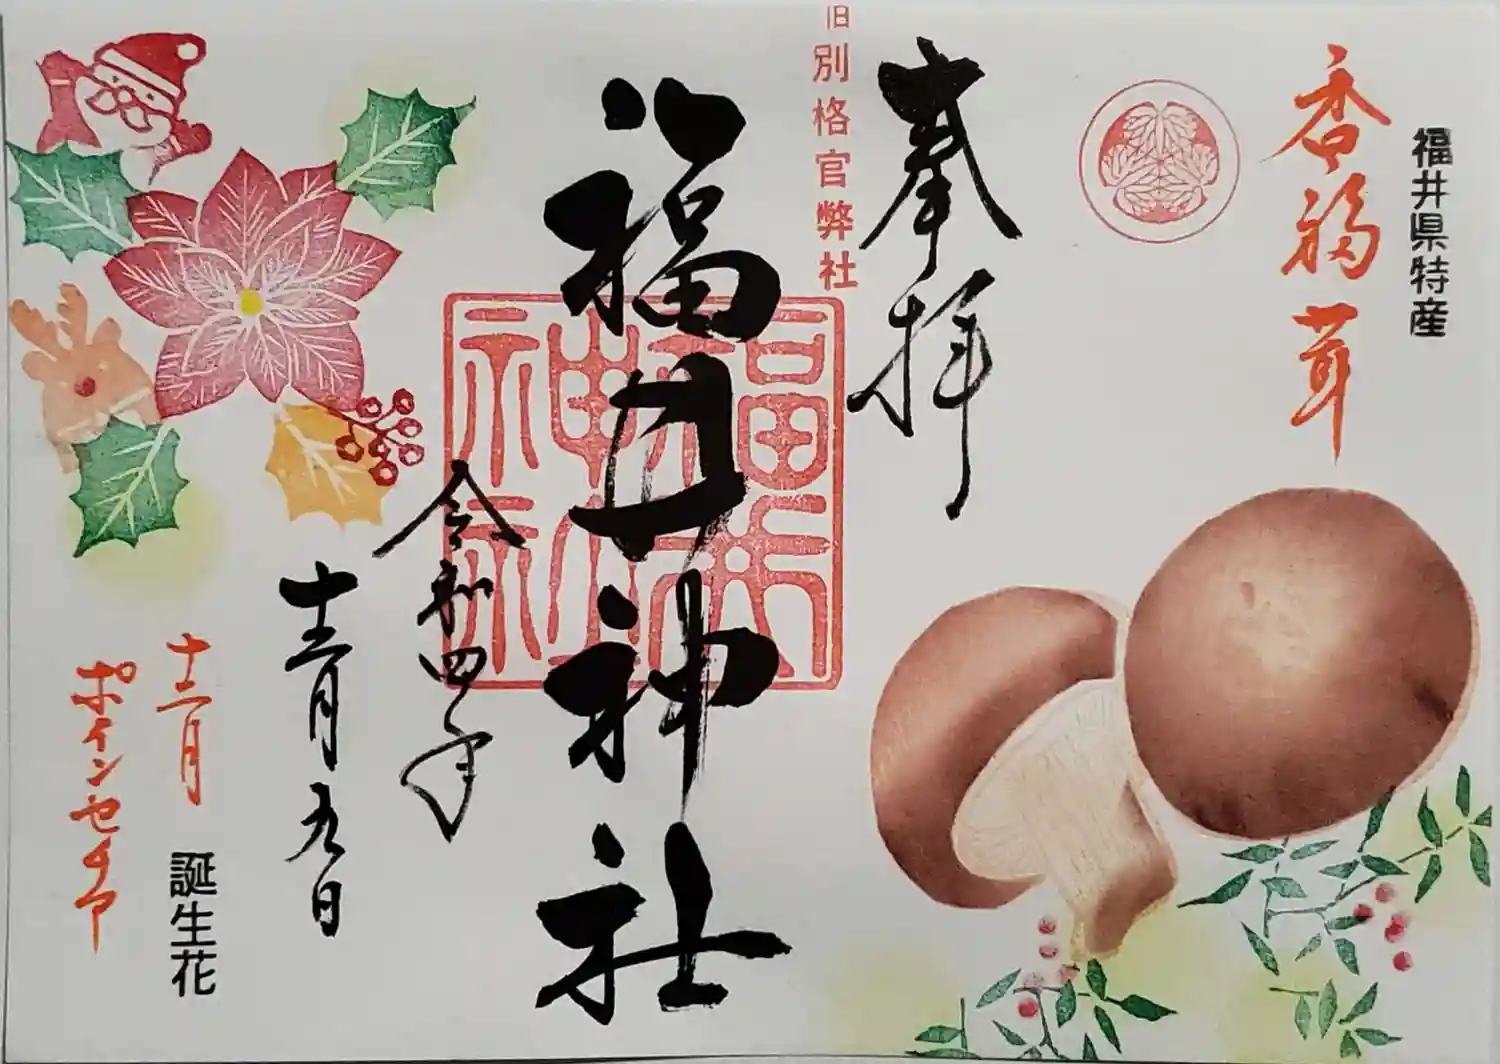 福井県特産
香福茸
奉拝
旧別格官弊社
福井神社
福井神社
令和四年
十二月九日
十二月
誕生花
ポインセチア